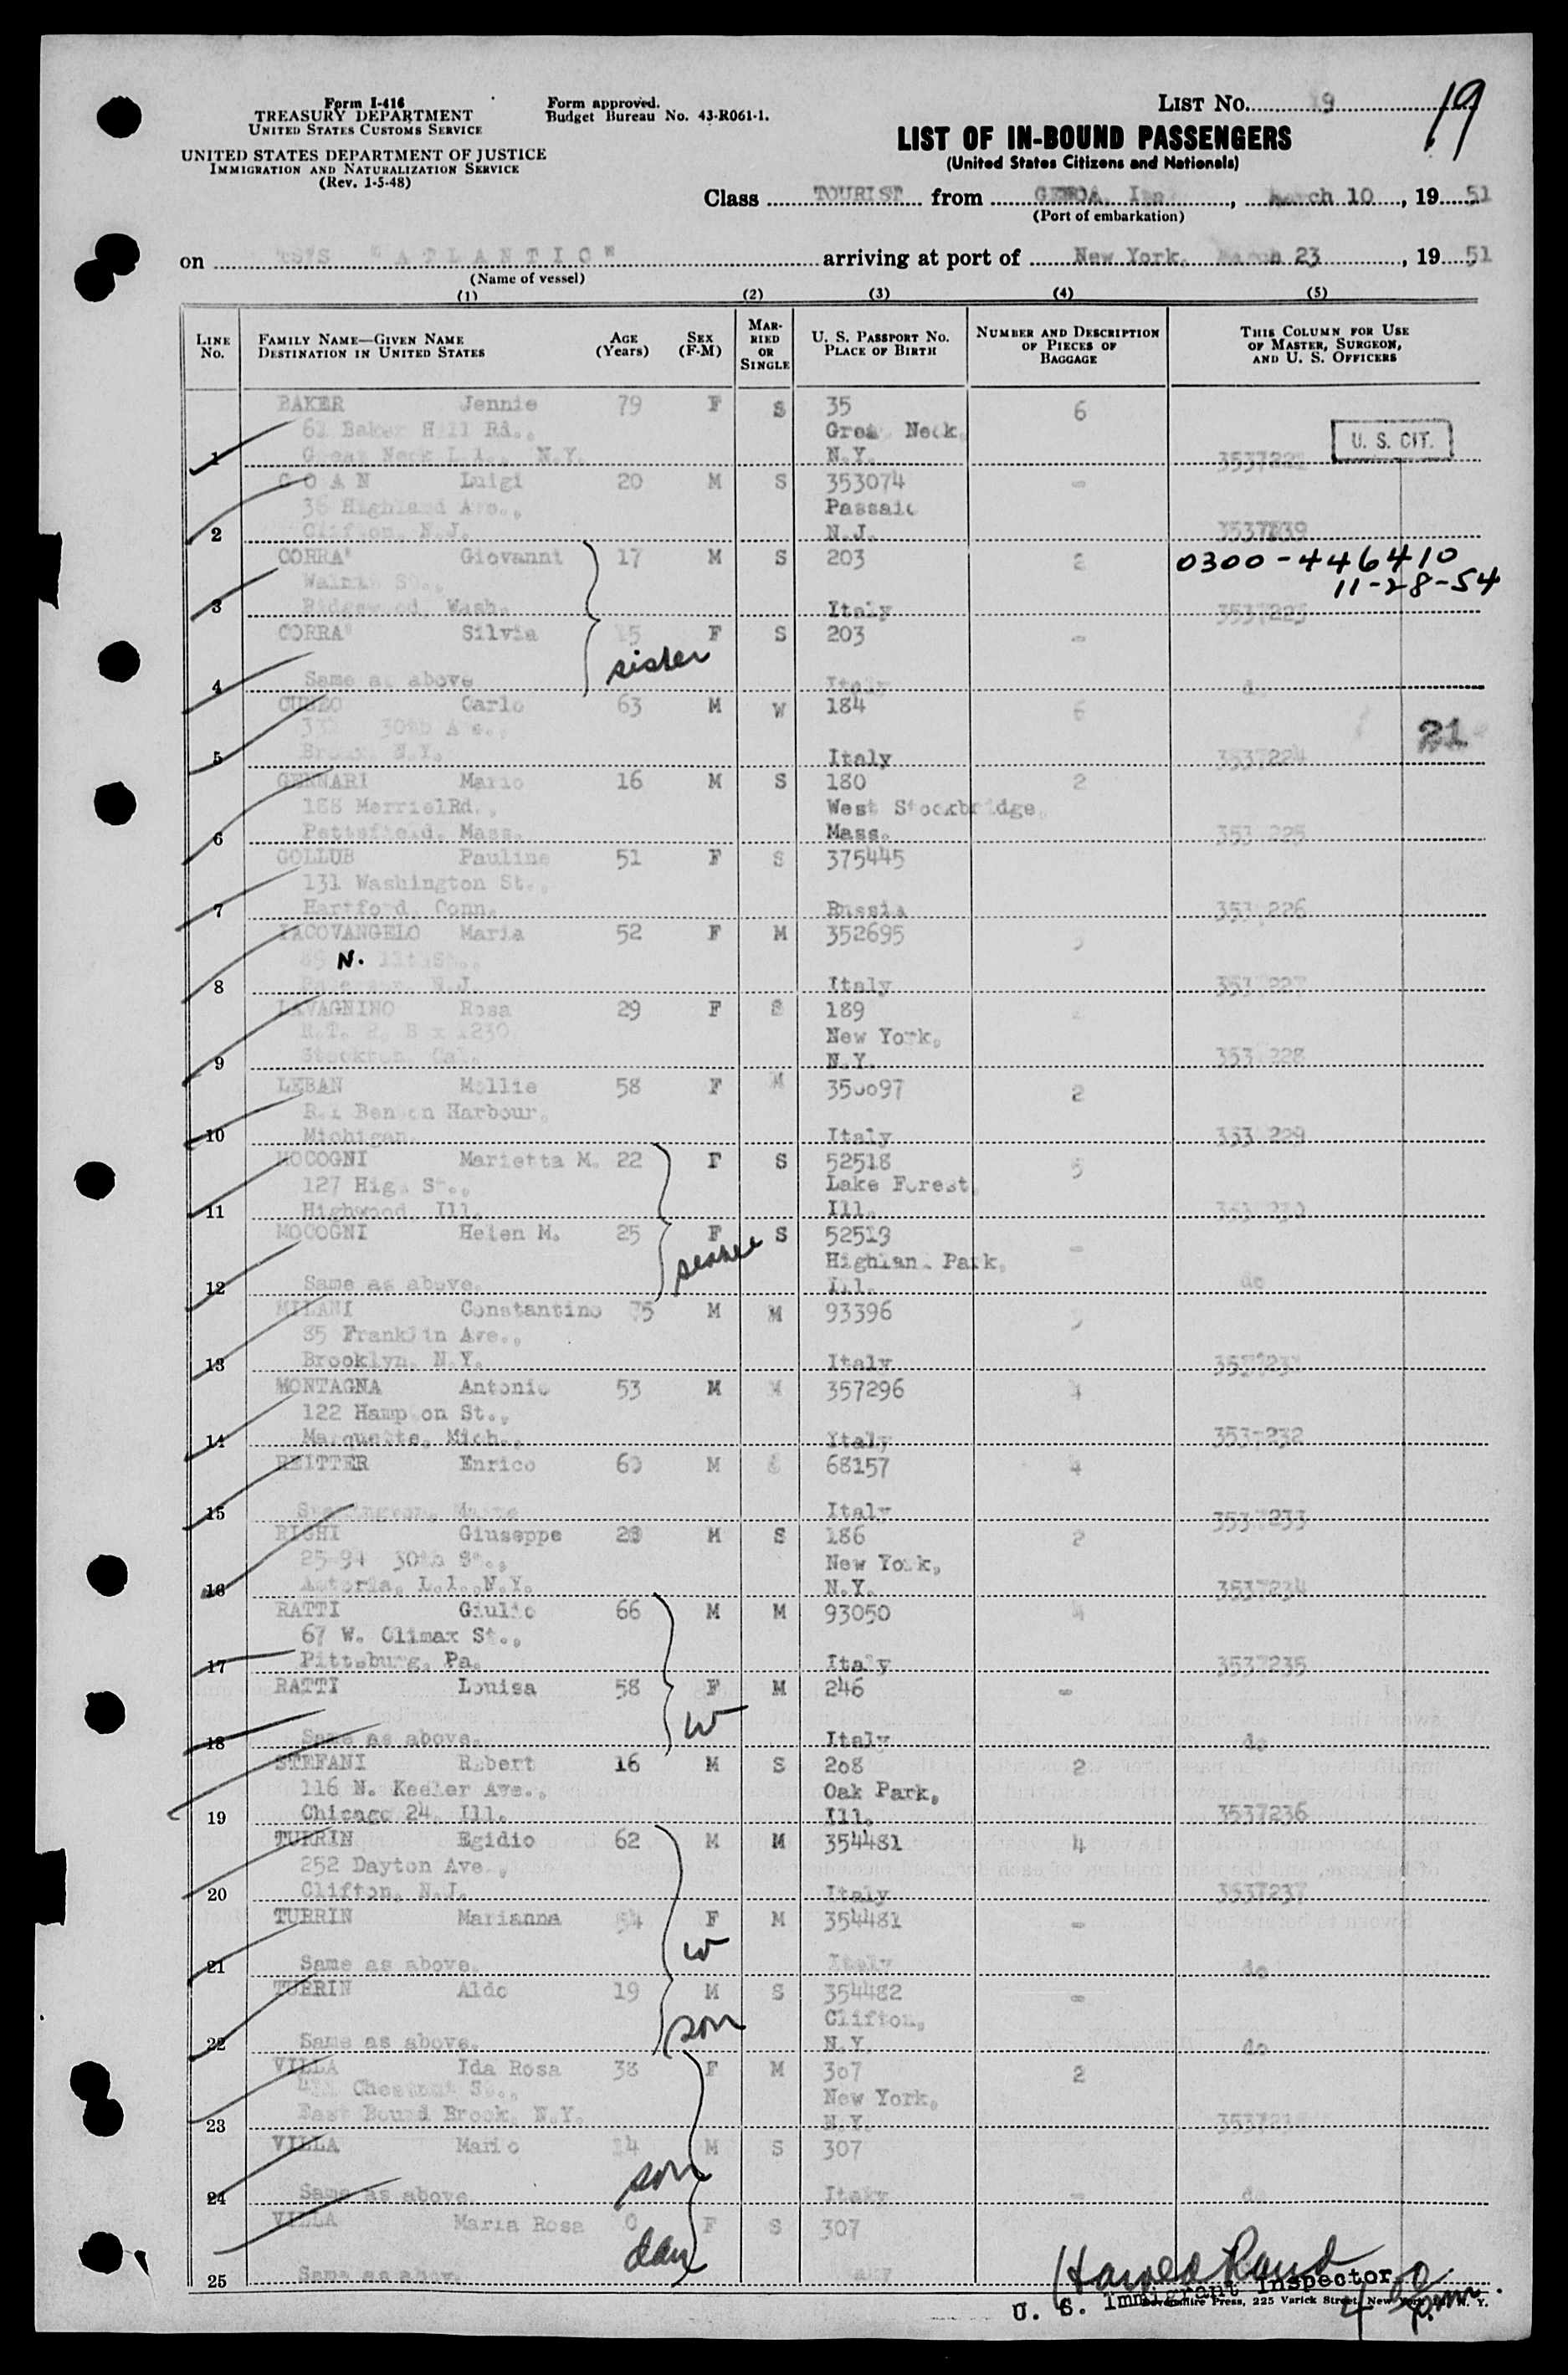 Form I-416
TREASURY DEPARTMENT
UNITED STATES CUSTOMS SERVICE
UNITED STATES DEPARTMENT OF JUSTICE
IMMIGRATION AND NATURALIZATION SERVICE
(Rev. 1-5-48)
Form approved.
Budget Bureau No. 43-R061-1.
LIST NO. 19
19
LIST OF IN-BOUND PASSENGERS
(United States Citizens and Nationals)
Class TOURIST from GENOA, , March 10, 1951
(Port of embarkation)
on "ATLANTIC" arriving at port of New York, March 23, 1951
(Name of vessel)
(1) (2) (3) (4) (5)
LINE NO. FAMILY NAME—GIVEN NAME DESTINATION IN UNITED STATES AGE (Years) SEX (F-M) MARRIED OR SINGLE U. S. PASSPORT NO. PLACE OF BIRTH NUMBER AND DESCRIPTION OF PIECES OF BAGGAGE THIS COLUMN FOR USE OF MASTER, SURGEON, AND U. S. OFFICERS
BAKER Jennie 79 F S 35 6
Baker Hill Rd., Great Neck, U. S. CIT.
1 Great Neck N.Y. N.Y.
COAN Luigi 20 M S 353074 -
Highland Ave., Passaic
2 Clifton, N.J. N.J.
CORRA' Giovanni 17 M S 203 2 0300-446410
11-28-54
3 Ridgewood, Wash. Italy 3537223
CORRA' Silvia 15 F S 203 -
sister
4 Same as above Italy
Carlo 63 M W 184 6
30th Ave.,
21
5 Bronx N.Y. Italy 3537224
GENNARI Mario 16 M S 180 2
188 MerrielRd., West Stockbridge,
6 Mass. Mass. 225
GOLLUB Pauline 51 F S 375445
131 Washington St.,
7 Hartford, Conn. Russia 226
IACOVANGELO Maria 52 F M 352695
N.
8 N.J. Italy 227
LAVAGNINO Rosa 29 F S 189
1230 New York,
9 Stockton, Cal. N.Y. 228
LEBAN Mollie 58 F M 2
Benton Harbour,
10 Michigan. Italy 229
MOCOGNI Marietta M. 22 F S 52518 5
127 High St., Lake Forest,
11 Highwood, Ill. Ill.
MOCOGNI Helen M. 25 F S 52519 -
Highland Park,
12 Same as above. Ill. do
MILANI Constantino 75 M M 93396
85 Franklin Ave.,
13 Brooklyn, N.Y. Italy
MONTAGNA Antonio 53 M M 357296 4
122 Hampton St.,
14 Marquette, Mich., Italy 3537232
REITTER Enrico M 68157 4
15 Italy 3537233
RIGHI Giuseppe M S 186 2
25-94 30th St., New York,
16 Astoria, L.I. N.Y. N.Y. 3537234
RATTI Giulio 66 M M 93050 4
67 W. Climax St.,
17 Pittsburg, Pa. Italy 3537235
RATTI Louisa 58 F M 246 -
w
18 Same as above. Italy do
STEFANI Robert 16 M S 208 2
116 N. Keeler Ave., Oak Park,
19 Chicago 24, Ill. Ill. 3537236
TURRIN Egidio 62 M M 354481 4
252 Dayton Ave.,
20 Clifton, N.J. Italy 3537237
TURRIN Marianna 54 F M 354481 -
w
21 Same as above. Italy do
TURRIN Aldo 19 M S 354482 -
son Clifton,
22 Same as above. N.Y. do
VILLA Ida Rosa 38 F M 307 2
Chestnut St., New York,
23 East Bound Brook, N.Y. N.Y.
VILLA Mario 14 M S 307
son
24 Same as above. Italy - do
VILLA Maria Rosa F S 307
dau
25 Same as above.
U. S. Immigrant Inspector
Press, 225 Varick Street, New York, N. Y.